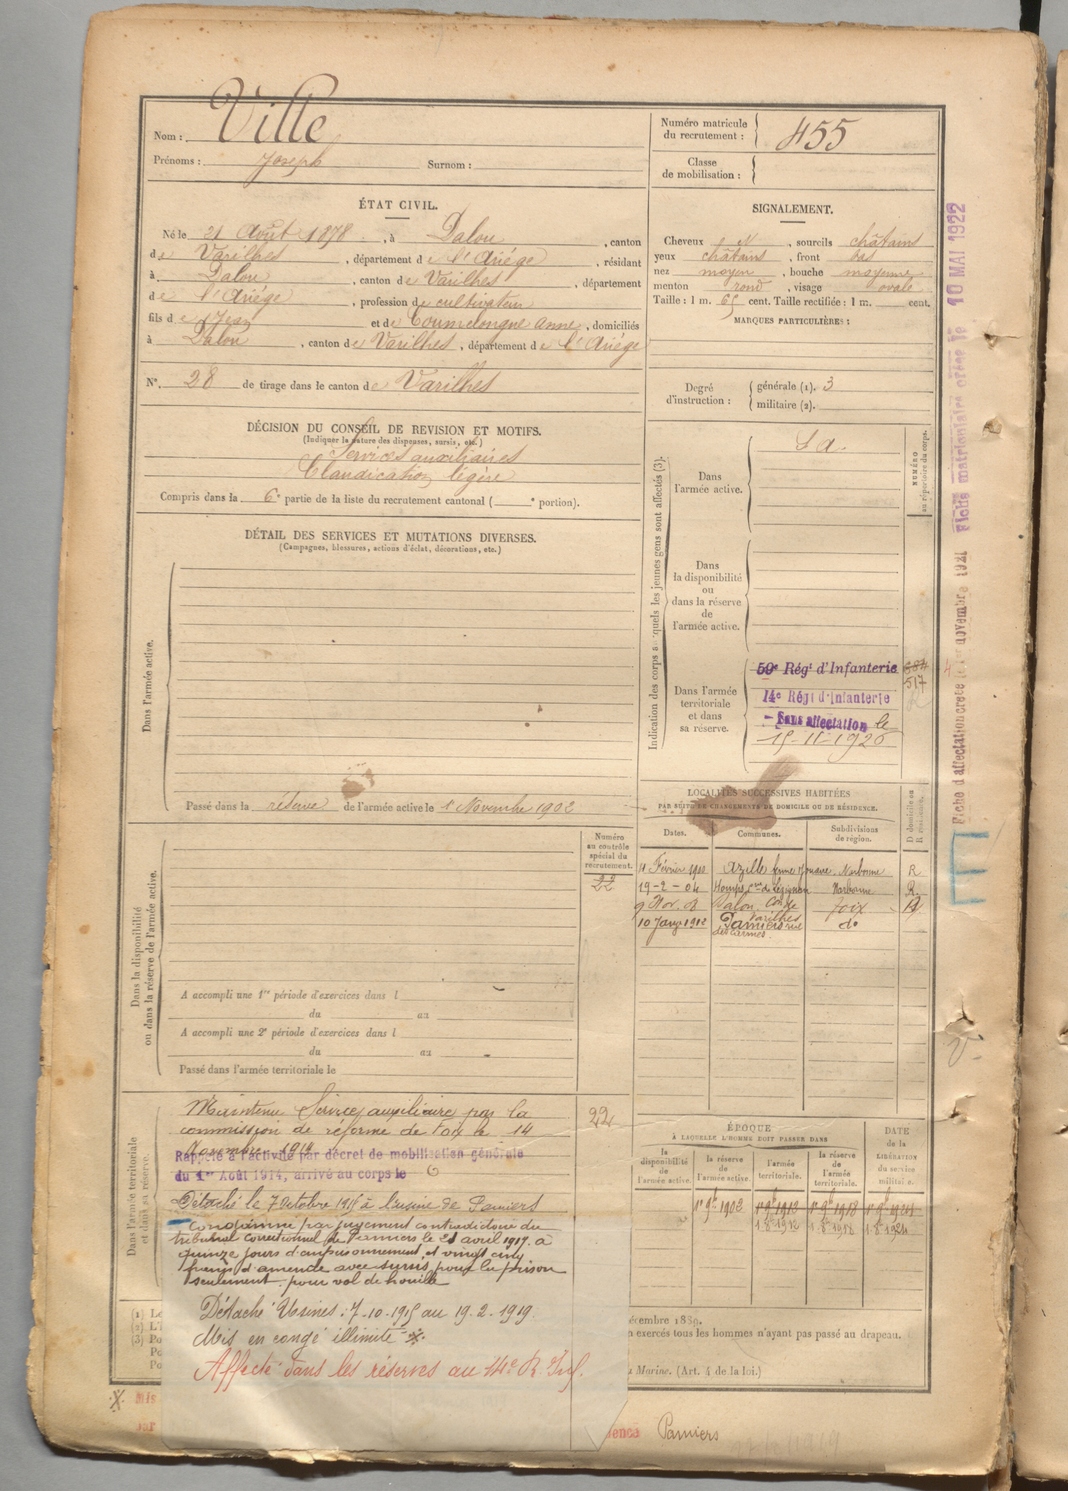 Nom : Ville
Prénoms : Joseph Surnom :
Numéro matricule du recrutement : 455
Classe de mobilisation :
ÉTAT CIVIL.
Né le 21 Août 1878, à Dalou, canton
de Varilhes, département de l'Ariège, résidant
à Dalou, canton de Varilhes, département
de l'Ariège, profession de cultivateur
fils de Jean et de Anne, domiciliés
à Dalou, canton de Varilhes, département de l'Ariège
N° 28 de tirage dans le canton de Varilhes
SIGNALEMENT.
Cheveux N, sourcils châtains
yeux châtains, front bas
nez moyen, bouche moyenne
menton rond, visage ovale
Taille : 1 m. 65 cent. Taille rectifiée : 1 m. cent.
MARQUES PARTICULIÈRES :
Degré d'instruction :
générale (1). 3
militaire (2).
DÉCISION DU CONSEIL DE REVISION ET MOTIFS.
(Indiquer la nature des dispenses, sursis, etc.)
Services auxiliaires
Claudication légère
Compris dans la 6e partie de la liste du recrutement cantonal ( e portion).
DÉTAIL DES SERVICES ET MUTATIONS DIVERSES.
(Campagnes, blessures, actions d'éclat, décorations, etc.)
Dans l'armée active.
Passé dans la réserve de l'armée active le 1 Novembre 1902
Indication des corps auxquels les jeunes gens sont affectés (3).
NUMÉRO au répertoire du corps.
Dans l'armée active.
S a.
Dans la disponibilité ou dans la réserve de l'armée active.
Dans l'armée territoriale et dans sa réserve.
59e Régt d'Infanterie
517
14e Régt d'Infanterie
Sans affectation le
15-11-1926
Fiche d'affectation créée le novembre 1921 Fiche matriculaire créée le 10 MAI 1922
LOCALITÉS SUCCESSIVES HABITÉES
PAR SUITE DE CHANGEMENTS DE DOMICILE OU DE RÉSIDENCE.
Dates. Communes. Subdivisions de région. D domicile ou R résidence.
11 Février 1903 Azille Narbonne R
19-2-04 Homps Narbonne R
9 Nov. Dalou Foix
10 Janv 1912 Varilhes Pamiers rue des Carmes. do
Numéro au contrôle spécial du recrutement.
22
Dans la disponibilité ou dans la réserve de l'armée active.
A accompli une 1re période d'exercices dans l
du au
A accompli une 2e période d'exercices dans l
du au
Passé dans l'armée territoriale le
Dans l'armée territoriale et dans sa réserve.
Maintenu Service auxiliaire par la
22
commission de réforme de Foix le 14
Novembre 1914
Rappelé à l'activité par décret de mobilisation générale
du 1er Août 1914, arrivé au corps le
Détaché le 7 Octobre 1915 à l'usine de Pamiers
Condamné par jugement contradictoire du
tribunal correctionnel de Pamiers le 21 avril 1917. à
quinze jours d'emprisonnement et vingt cinq
francs d'amende avec sursis pour la prison
seulement, pour vol de houille
Détaché Usines : 7-10-1915 au 19-2-1919.
Mis en congé illimité
Affecté dans les réserves au 14e R. Inf.
ÉPOQUE
À LAQUELLE L'HOMME DOIT PASSER DANS
DATE de la LIBÉRATION du service militaire.
la disponibilité de l'armée active.
la réserve de l'armée active.
l'armée territoriale.
la réserve de l'armée territoriale.
1er 9bre 1902
1.8bre 1912 1.8bre 1918 1.8bre 1924
écembre 1889.
n exercés tous les hommes n'ayant pas passé au drapeau.
Marine. (Art. 4 de la loi.)
Mis
par
dence Pamiers